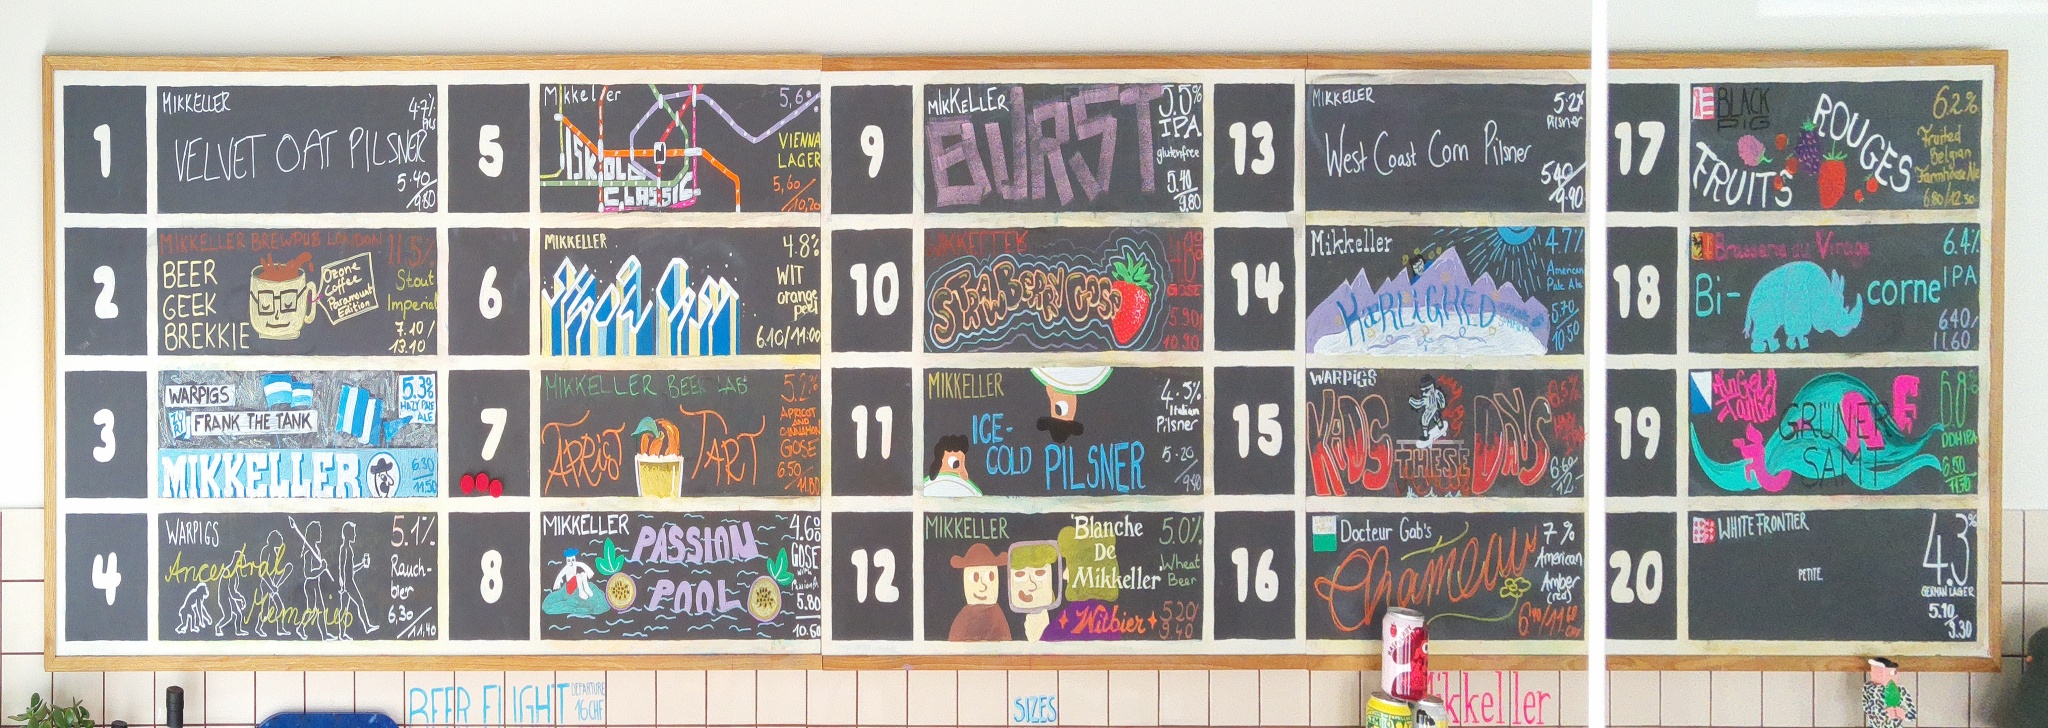 1
MIKKELLER
4.7%
Pils
VELVET OAT PILSNER
5.40/
9.80
2
MIKKELLER BREWPUB LONDON
11.5%
BEER
GEEK
BREKKIE
Ozone
Coffee
Paramount
Edition
Stout
Imperial
7.10/
13.10
3
WARPIGS
FRANK THE TANK
5.3%
HAZY PALE
ALE
MIKKELLER
6.30
11.50
4
WARPIGS
5.1%
Ancestral
Memories
Rauch-
bier
6.30/
11.40
5
Mikkeller
5,6%
ISKOLD
CLASSIC
VIENNA
LAGER
5,60/
10,20
6
MIKKELLER
4.8%
WIT
orange
peel
6.10/11.00
7
MIKKELLER BEER LAB
5.2%
TART
APRICOT
AND
CINNAMON
GOSE
6.50/
11.80
8
MIKKELLER
PASSION
POOL
4.6%
GOSE
5.80
10.60
9
MIKKELLER
BURST
5.5%
IPA
glutenfree
5.40
9.80
10
STRAWBERRY GOSE
GOSE
5.90/
10.90
11
MIKKELLER
ICE-
COLD PILSNER
4.5%
Italian
Pilsner
5.20
12
MIKKELLER
Blanche
De
Mikkeller
Witbier
5.0%
Wheat
Beer
5.20/
9.40
13
MIKKELLER
5.2%
Pilsner
West Coast Corn Pilsner
5.40/
9.90
14
Mikkeller
KÆRLIGHED
4.7%
American
Pale Ale
5.70
10.50
15
WARPIGS
KIDS
THESE
DAYS
6.60/
12.-
16
Docteur Gab's
Chameau
7%
American
Amber
(red)
17
BLACK
PIG
ROUGES
FRUITS
6.2%
Fruited
Belgian
Farmhouse Ale
6.80/12.50
18
Brasserie du Virage
Bi-corne
6.4%
IPA
6.40/
11.60
19
GRÜNER
SAMT
6.8%
DDH IPA
6.50
11.50
20
WHITE FRONTIER
PETITE
4.3%
GERMAN LAGER
5.10
9.30
BEER FLIGHT
DEPARTURE
16 CHF
SIZES
Mikkeller